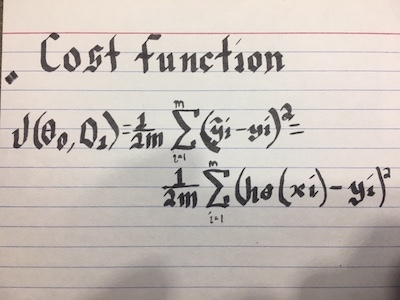 Cost function
J(θ₀, θ₁) = 1/2m ∑ᵢ₌₁ᵐ (ŷi - yi)² =
1/2m ∑ᵢ₌₁ᵐ (hθ(xi) - yi)²